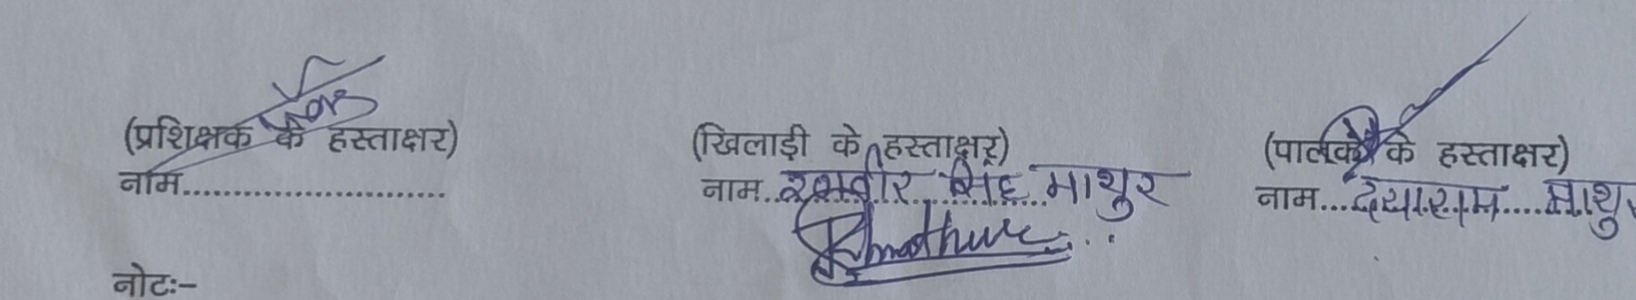 (प्रशिक्षक के हस्ताक्षर) (खिलाड़ी के हस्ताक्षर) (पालक के हस्ताक्षर)
नाम............................ नाम.. सिंह माथुर नाम...दयाराम....माथुर
Rmathur
नोटः-